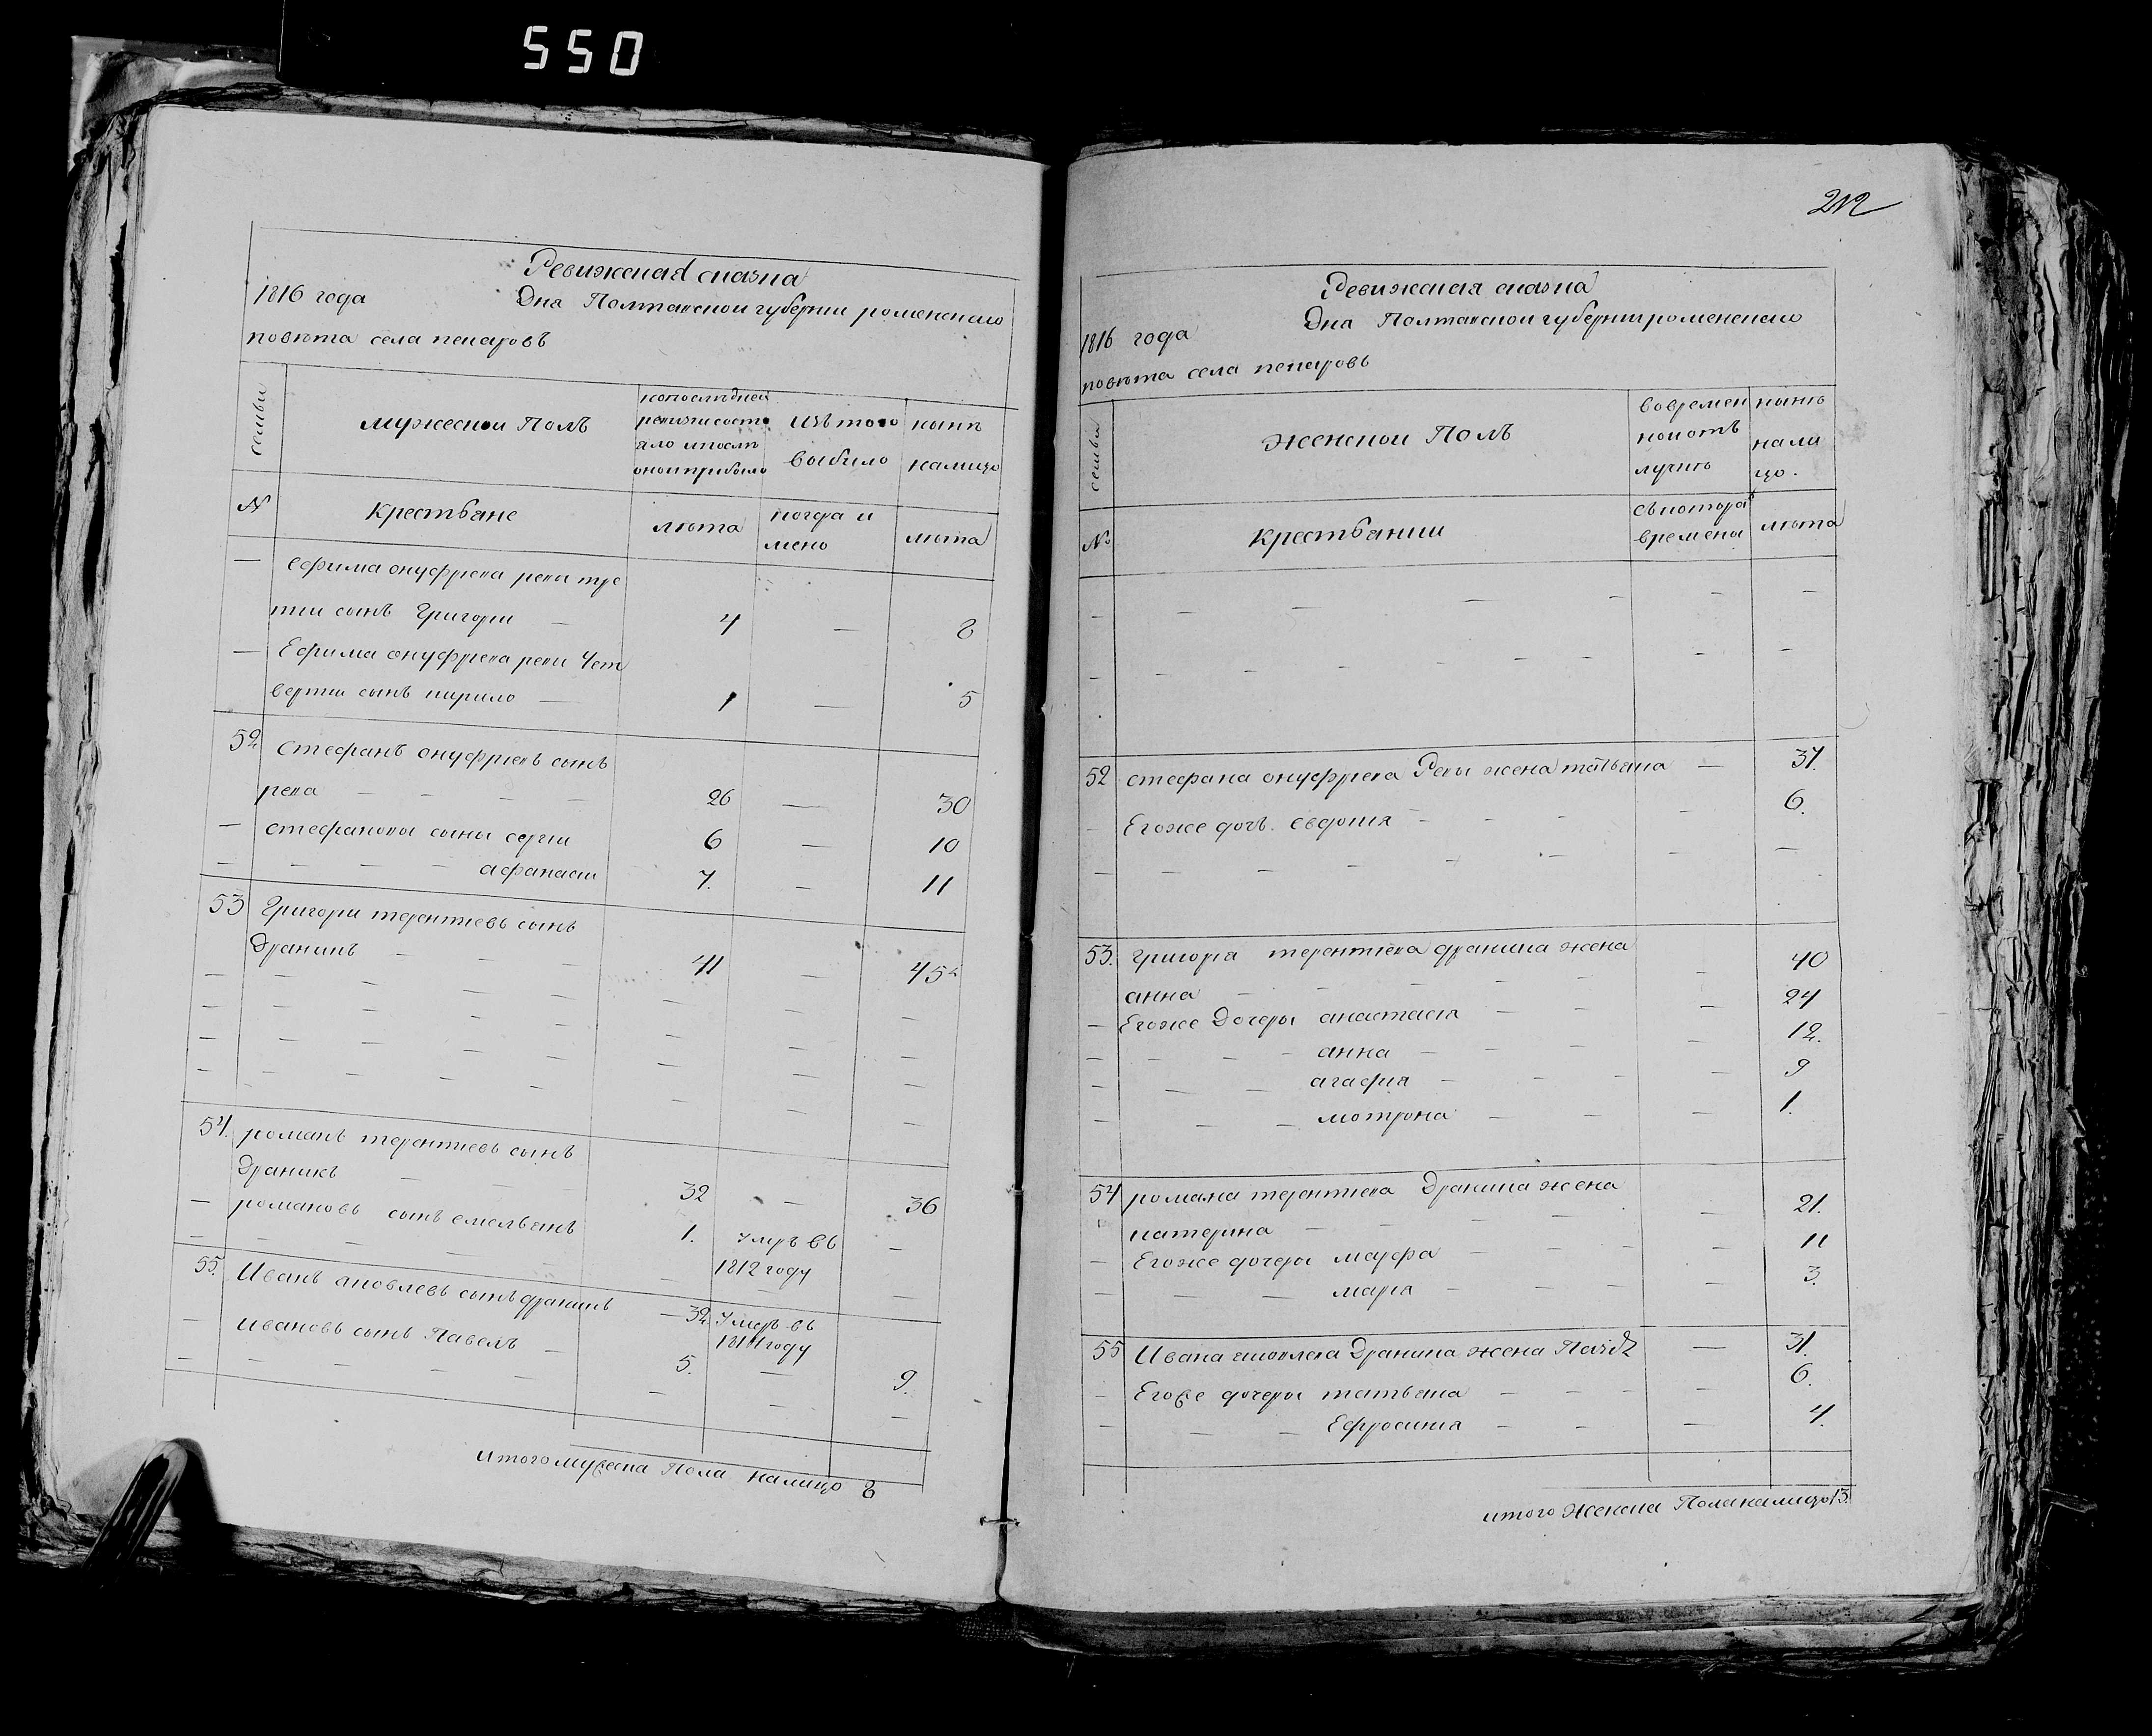 550
Ревижская сказка
1816 года Дня Полтавской губернии роменского
повѣта села пекаровъ
семьи
мужеской Полъ
напослѣдней
ревизиисосто
яло ипослѣ
онойприбыло
Изъ того
выбило
нынѣ
налицо
№
Крестьяне
лѣта
когда и
лѣта
— ефима онуфрѣева репи тре
тии сынъ Григори — 4 — 8
— Ефима онуфрѣева репи Чет
вертии сынъ кирило — 1 — 5
52 Стефанъ онуфрѣевъ сынъ
репа — — — — 26 — 30
— стефановы сыны сергии 6 — 10
— — — — афанаси 7. — 11
53 Григори терентиевъ сынъ
Драникъ — — — 41 — 45
54. романъ терентиевъ сынъ
Драникъ — — 32 — 36
— романовъ сынъ емельянъ 1. умръ въ —
1812 году
55. Иванъ яковлевъ сынъ драникъ — 32 Умеръ въ
1811 году
— ивановъ сынъ Павелъ — 5. — 9.
итого мужеска Пола налицо 8
212
Ревижская сказка
1816 года Дня Полтавской губернии роменского
повѣта села пекаровъ
семьи
Женской Полъ
вовремен
ной отъ
лучкѣ
нынѣ
нали
цо.
№
Крестьянки
съкотора
времены
лѣта
52 стефана онуфрѣева Репы жена татьяна — 37.
— Егоже дочь евдокия — — — 6.
53. григория терентиева драника жена
анна — — — — 40
— Егоже Дочеры анастасия — — — 24
— — — — анна — — — 12.
— — — — агафия — — — 9
— — — — мотрона — — — 1.
54 романа терентиева Драника жена
катерина — — — — 21.
— Егоже дочеры марфа — — — 11
— — — мария — — — 3.
55 Ивана яковлева Драника жена — 31.
— Егоже дочеры татьяна — — — 6.
— — — Ефросиния — — — 4.
итого Женска Пола налицо 13.